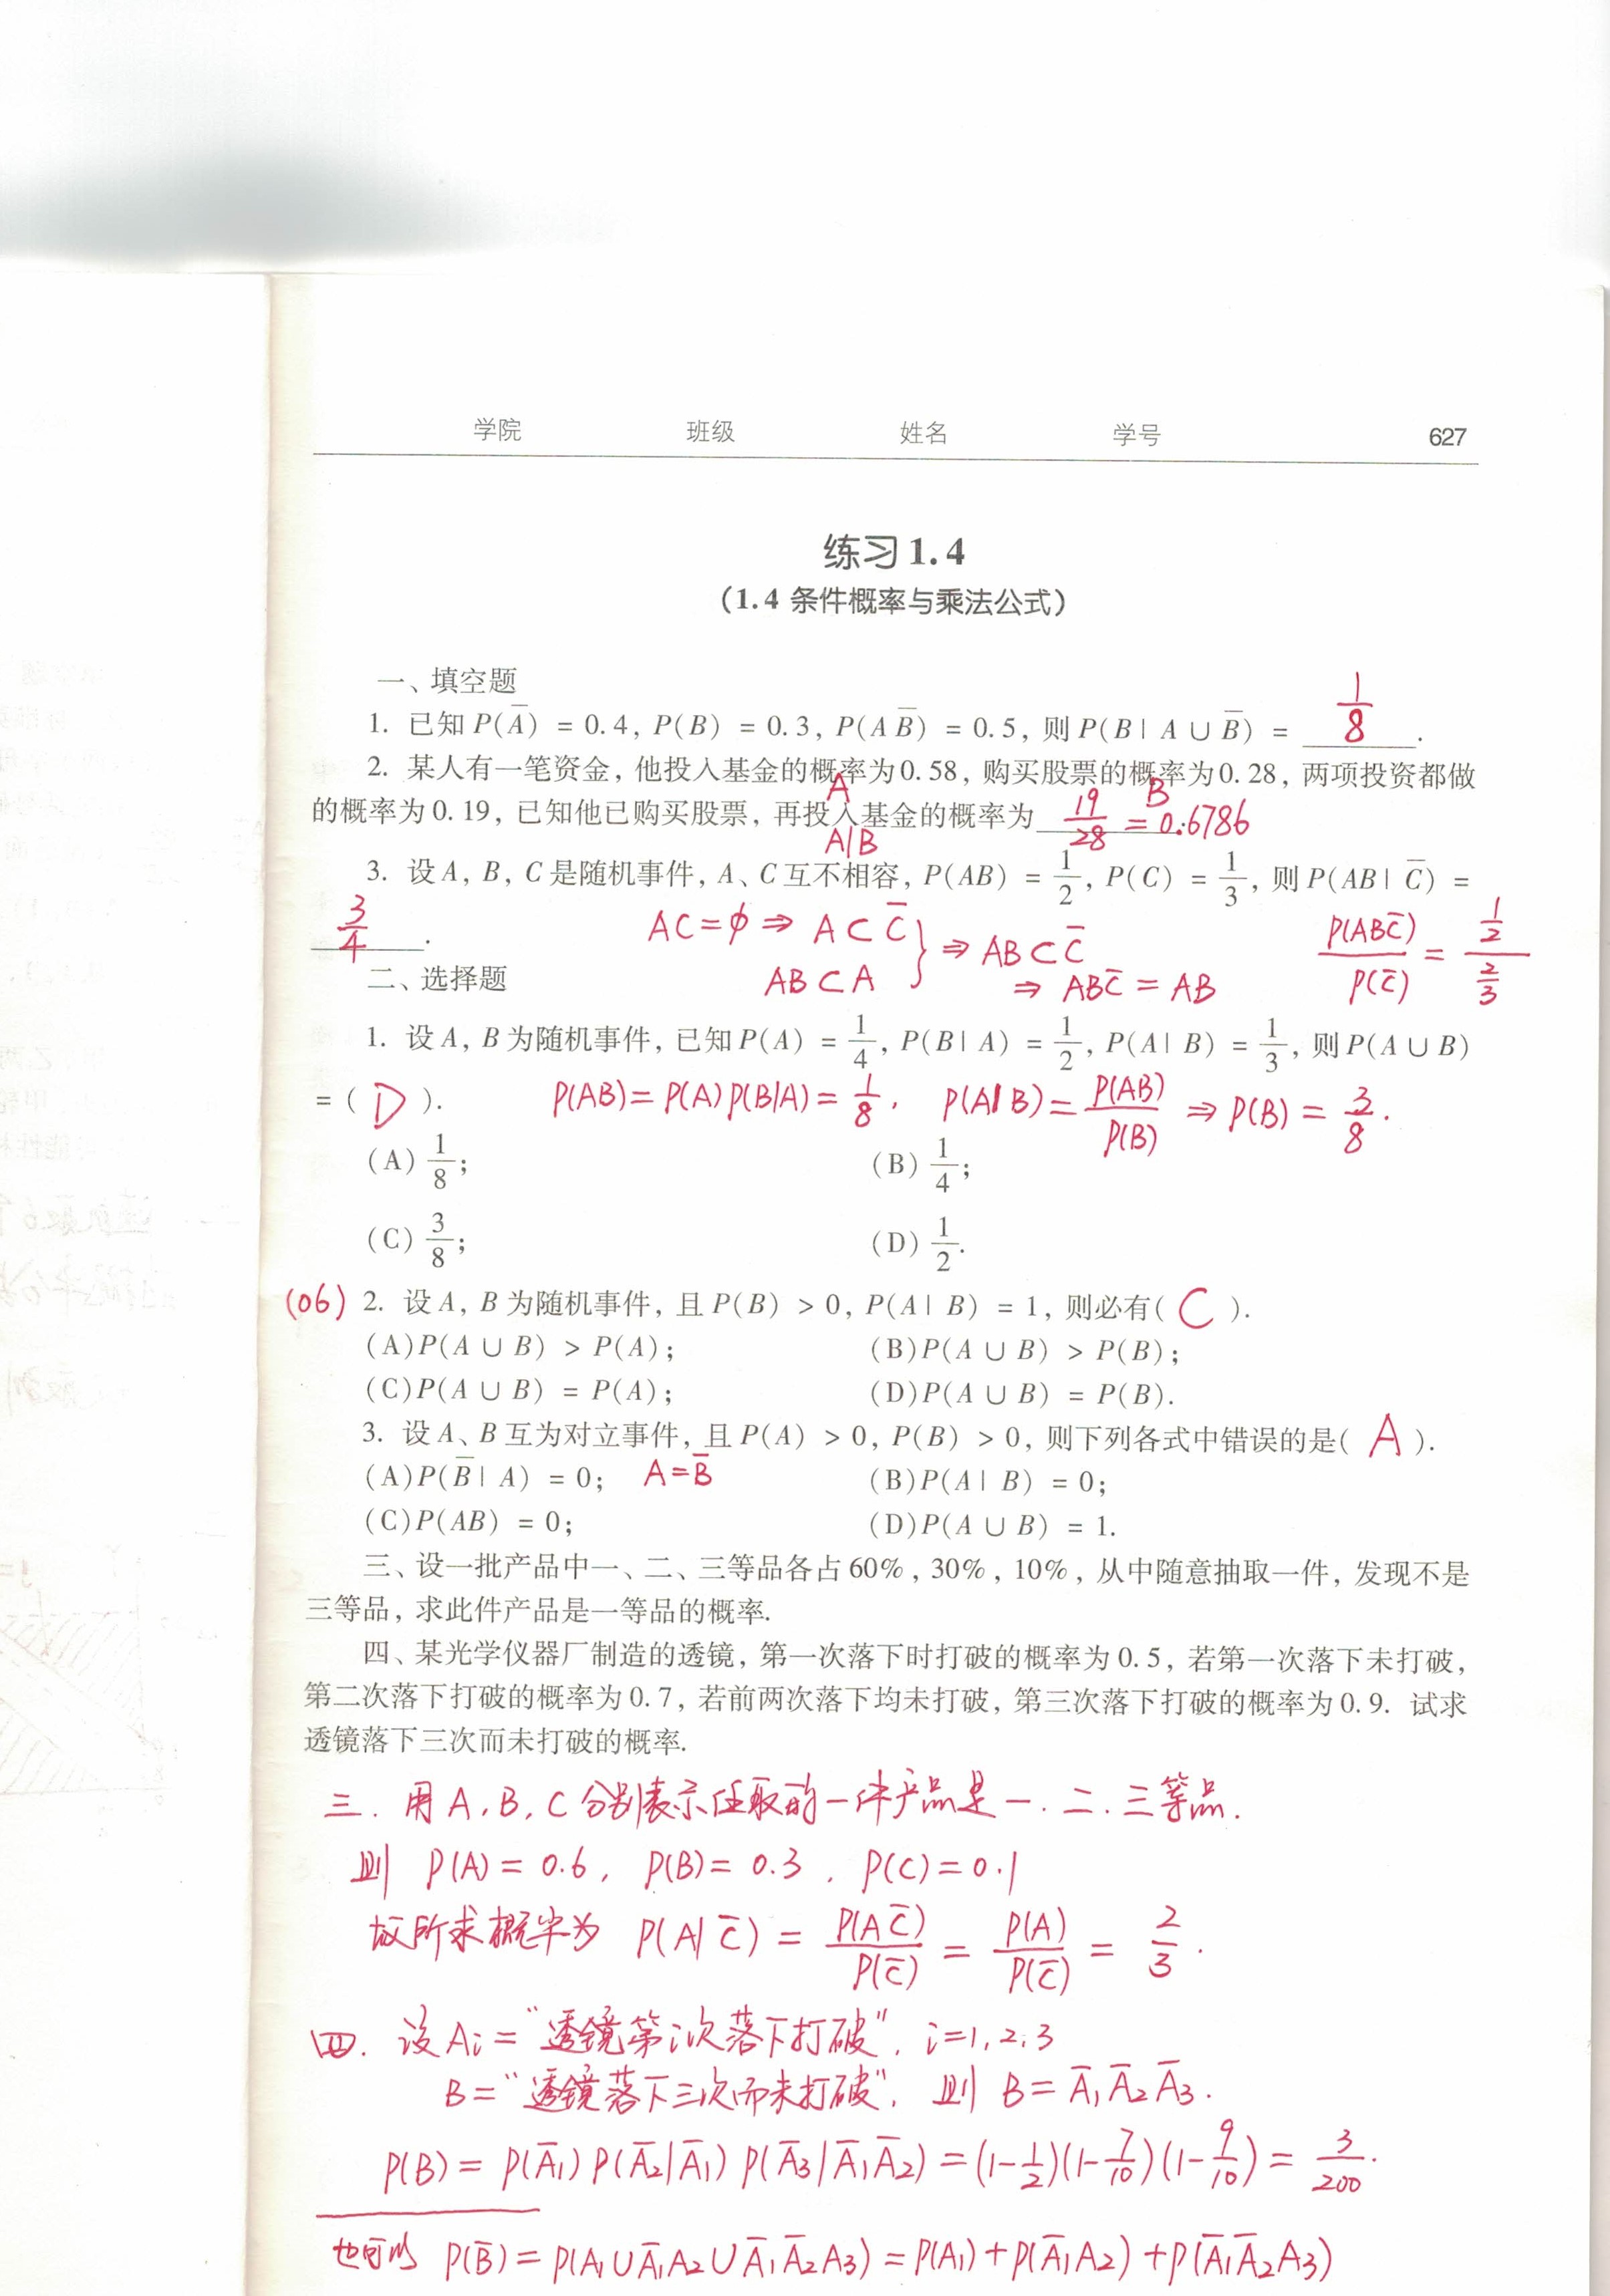 学院 班级 姓名 学号 627
练习1.4
（1.4 条件概率与乘法公式）
一、填空题
1. 已知 P(A̅) = 0.4, P(B) = 0.3, P(A B̅) = 0.5, 则 P(B | A ∪ B̅) = 1/8 .
2. 某人有一笔资金, 他投入基金的概率为0.58, 购买股票的概率为0.28, 两项投资都做
A B
的概率为0.19, 已知他已购买股票, 再投入基金的概率为 19/28 = 0.6786
A|B
3. 设 A, B, C 是随机事件, A、C 互不相容, P(AB) = 1/2, P(C) = 1/3, 则 P(AB | C̅) =
3/4 . AC=ϕ ⇒ A⊂C̅ } ⇒ AB⊂C̅ P(ABC̅)/P(C̅) = (1/2)/(2/3)
AB⊂A ⇒ ABC̅ = AB
二、选择题
1. 设 A, B 为随机事件, 已知 P(A) = 1/4, P(B | A) = 1/2, P(A | B) = 1/3, 则 P(A ∪ B)
= ( D ). P(AB)=P(A)P(B|A)=1/8. P(A|B)=P(AB)/P(B) ⇒ P(B)=3/8.
(A) 1/8; (B) 1/4;
(C) 3/8; (D) 1/2.
(06) 2. 设 A, B 为随机事件, 且 P(B) > 0, P(A | B) = 1, 则必有( C ).
(A)P(A ∪ B) > P(A); (B)P(A ∪ B) > P(B);
(C)P(A ∪ B) = P(A); (D)P(A ∪ B) = P(B).
3. 设 A、B 互为对立事件, 且 P(A) > 0, P(B) > 0, 则下列各式中错误的是( A ).
(A)P(B̅ | A) = 0; A=B̅ (B)P(A | B) = 0;
(C)P(AB) = 0; (D)P(A ∪ B) = 1.
三、设一批产品中一、二、三等品各占60%, 30%, 10%, 从中随意抽取一件, 发现不是
三等品, 求此件产品是一等品的概率.
四、某光学仪器厂制造的透镜, 第一次落下时打破的概率为0.5, 若第一次落下未打破,
第二次落下打破的概率为0.7, 若前两次落下均未打破, 第三次落下打破的概率为0.9. 试求
透镜落下三次而未打破的概率.
三. 用A, B, C分别表示任取的一件产品是一. 二. 三等品.
则 P(A)=0.6, P(B)=0.3, P(C)=0.1
故所求概率为 P(A|C̅) = P(AC̅)/P(C̅) = P(A)/P(C̅) = 2/3.
四. 设Ai="透镜第i次落下打破", i=1,2,3
B="透镜落下三次而未打破", 则 B=A̅₁A̅₂A̅₃.
P(B)=P(A̅₁)P(A̅₂|A̅₁)P(A̅₃|A̅₁A̅₂)=(1-1/2)(1-7/10)(1-9/10)=3/200.
也可以 P(B̅)=P(A₁∪A̅₁A₂∪A̅₁A̅₂A₃)=P(A₁)+P(A̅₁A₂)+P(A̅₁A̅₂A₃)